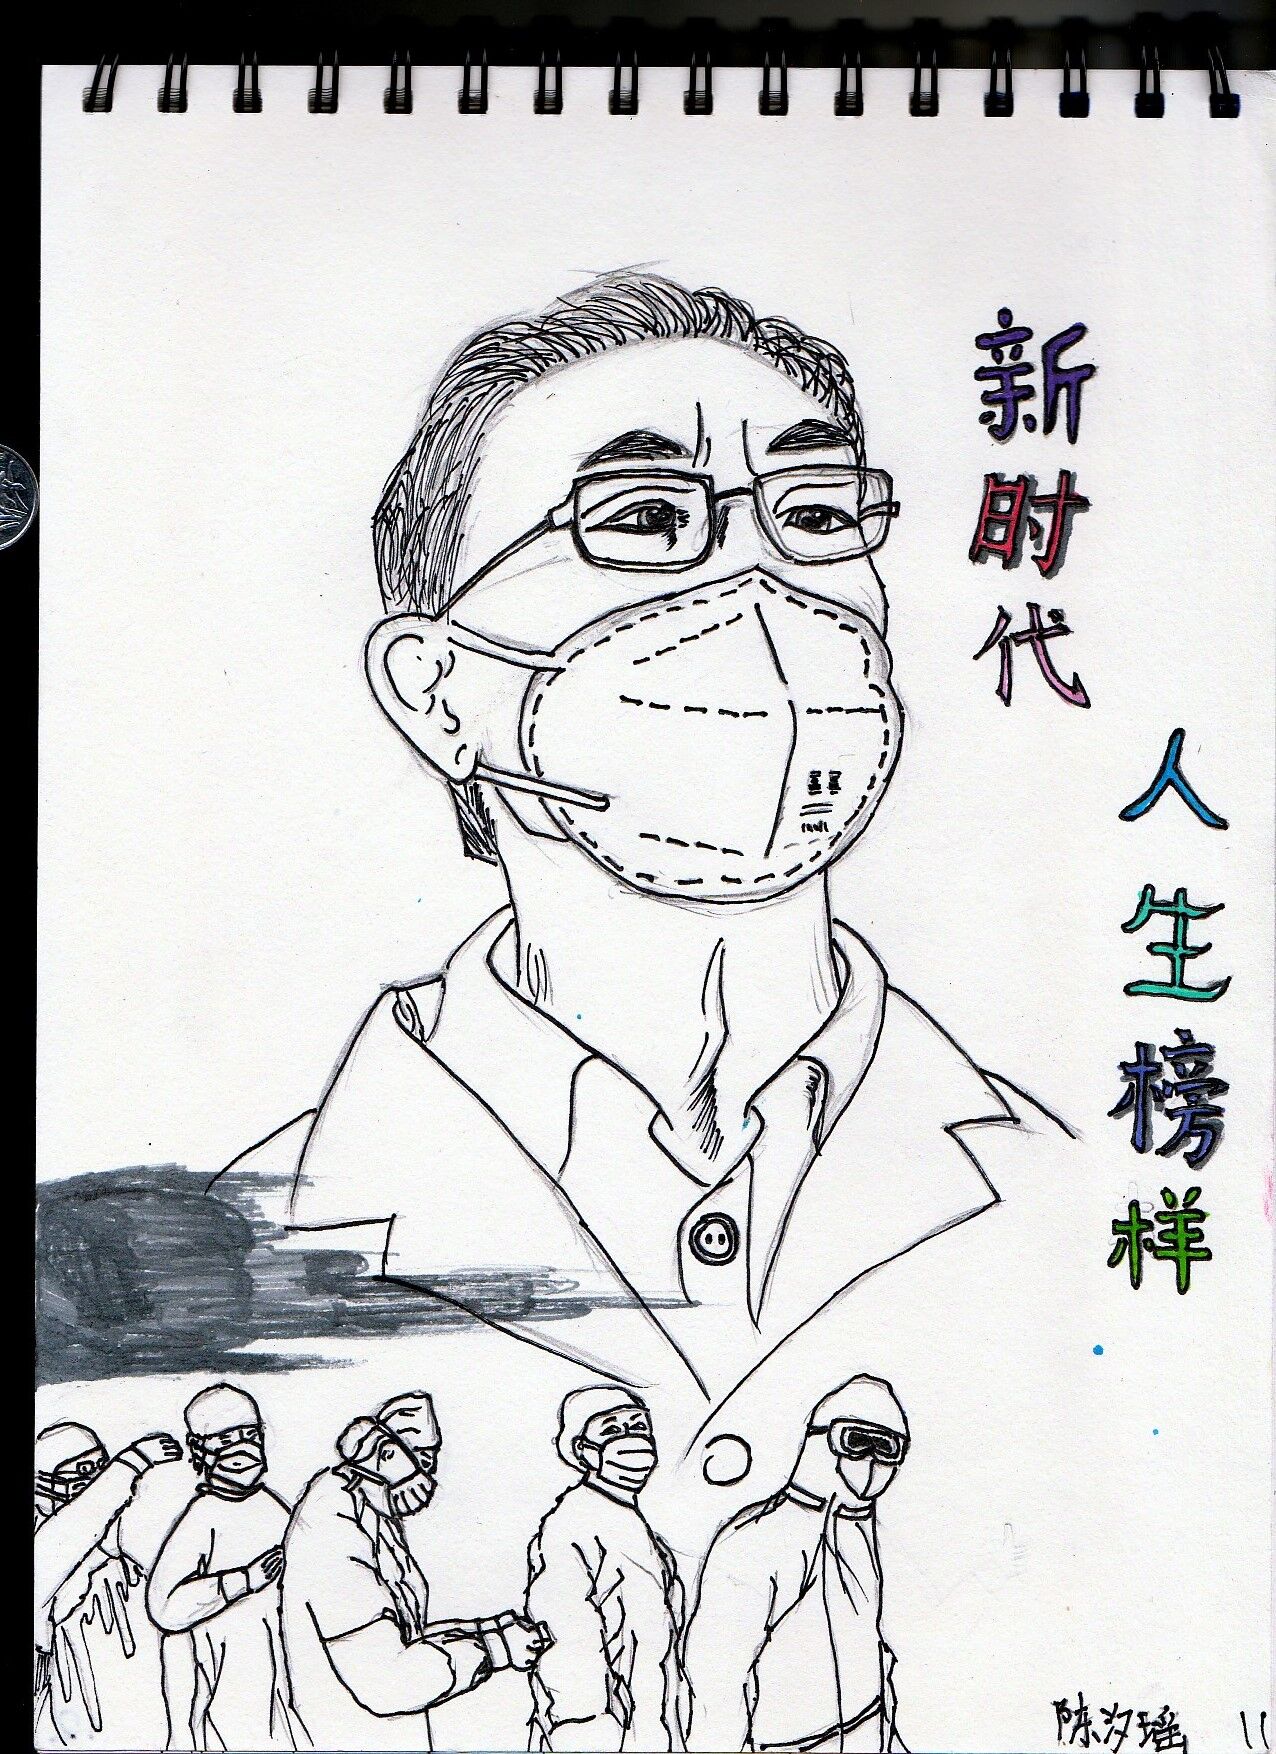 新时代
人生榜样
陈汐瑶
11